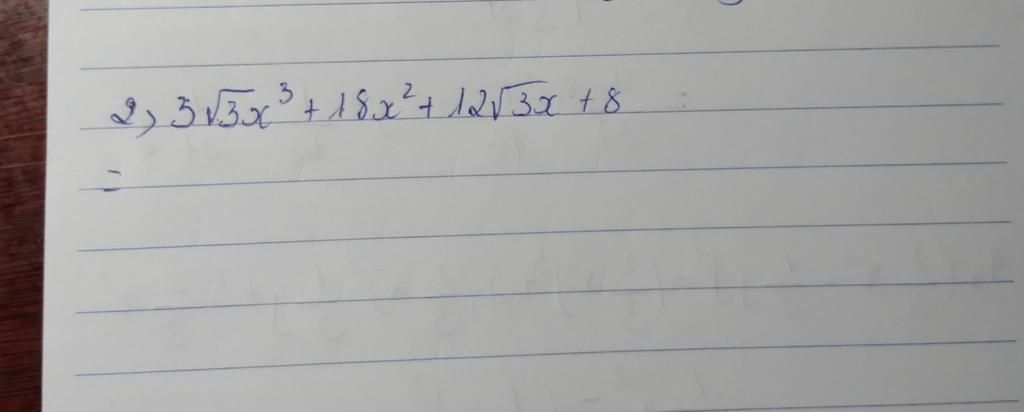 2) 3√3x³ + 18x² + 12√3x + 8
=